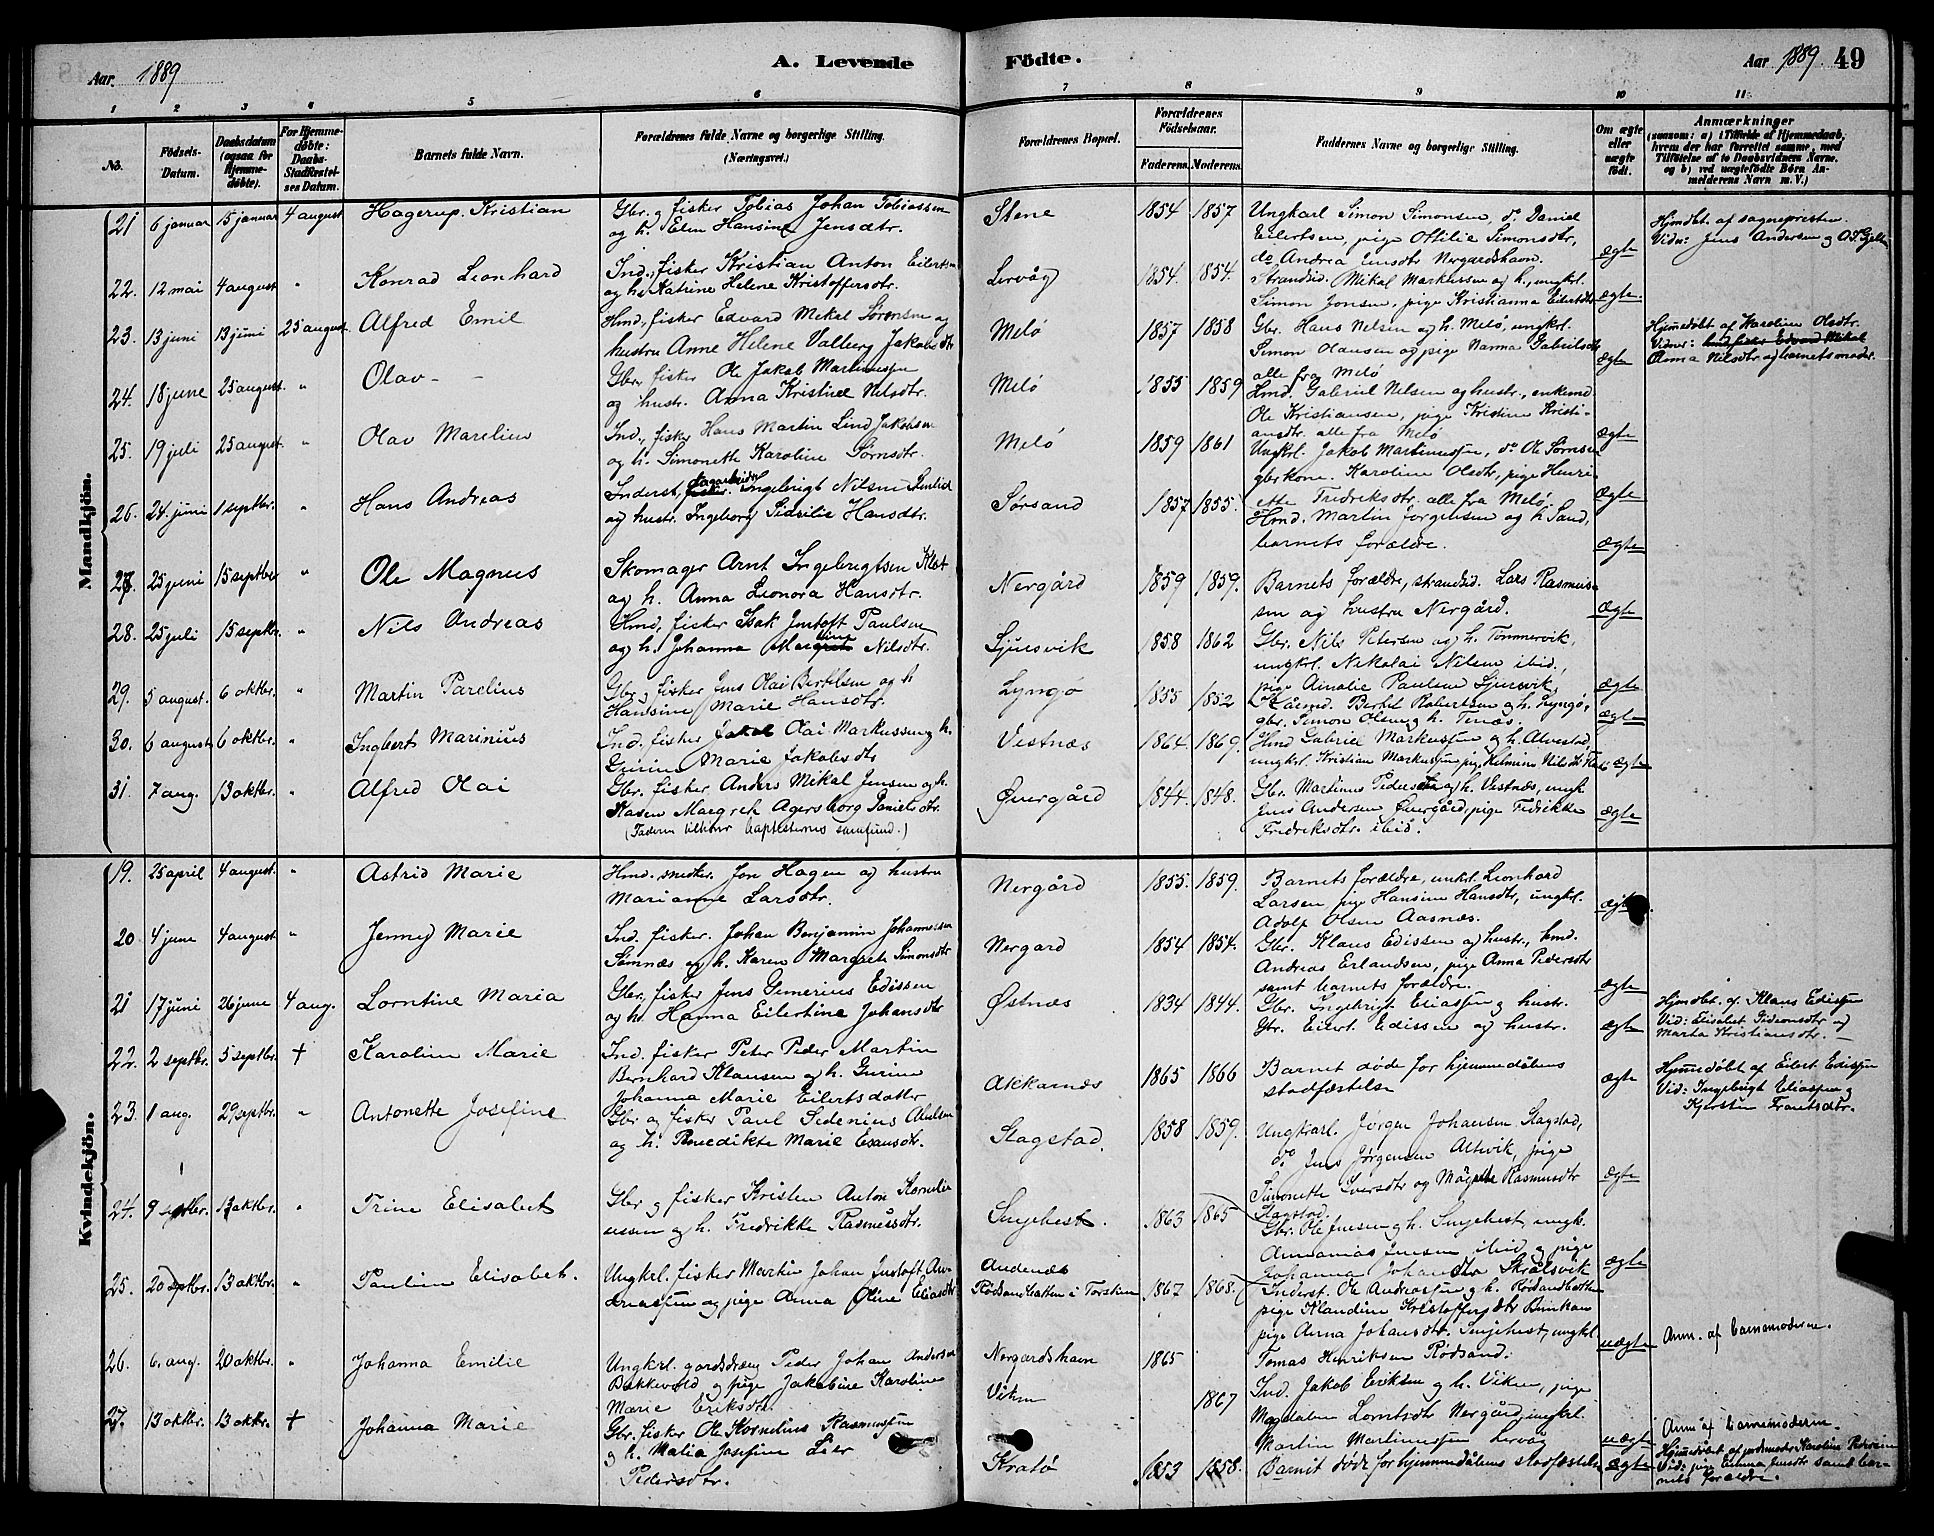 Aar. 1889
A. Levende
Födte.
Aar 1889. 49
1 2 3 4 5 6 7 8 9 10 11
No.
Födsels-Datum.
Daabsdatum (ogsaa for Hjemmedøbte).
For Hjemmedøbte: Daabs-Stadfæstelses Datum.
Barnets fulde Navn.
Forældrenes fulde Navne og borgerlige Stilling. (Næringsvei.)
Forældrenes Bopæl.
Forældrenes Födselsaar.
Faderens. Moderens.
Faddernes Navne og borgerlige Stilling.
Om ægte eller uægte födt.
Anmærkninger (saasom: a) i Tilfælde af Hjemmedaab, hvem der har forrettet samme, med Tilföielse af to Daabsvidners Navne, og b) ved uægtefödte Börn Anmelderens Navn m. V.)
Mandkjön.
21 6 januar 15 januar 4 august Hagerup Kristian
Gbr. og fisker Tobias Johan Tobiassen
og h. Elen Hansine Jensdtr.
Stene 1854 1857
Ungkarl Simon Simonsen, do Daniel
Eilertsen, pige Ottilie Simonsdtr,
do Andrea Jensdtr Nergardshavn.
ægte
Hjemdbt. af sognepresten.
Vidn: Jens Andersen og
22. 12 mai 4 august " Konrad Leonhard
Ind., fisker Kristian Anton Eilertsen
og h. Katrine Helene Kristoffersdtr.
Lervåg 1854. 1854.
Strandsid. Mikal Markussen og h., ungkrl.
Simon Jonsen, pige Kristianna Eilertsdtr
ægte.
23. 13 juni 13 juni 25 august. Alfred Emil
Hmd., fisker Edvard Mekal Sørensen og
hustru Anne Helene Valberg Jakobsdtr
Melø 1857 1858
Gbr. Hans Nelsen og h. Melø, ungkrl.
Simon Olausen og pige Nanna Gabrielsdtr
alle fra Melø
ægte
Hjemmedøbt af Karoline Olsdtr.
Vidner:
Anna Nilsdtr og barnets moder.
24. 18 june 25 august. " Olav
Gbr., fisker Ole Jakob Martinussen
og hustr. Anna Kristine Nilsdtr.
Melø 1855 1859
Hmd. Gabriel Nelsen og hustr., enkemd.
Ole Kristiansen, pige Kristine Kristi-
ansdtr. alle fra Melø
ægte
25. 19 juli 25 august. " Olav Marelius
Ind., fisker Hans Martin Lind Jakobsen
og h. Simonette Karoline Sørnsdtr.
Melø 1859 1861
Ungkrl. Jakob Martinussen, do Ole Sørnsen
gbrkone. Karoline Olsdtr, pige Henri-
ette Fredriksdtr. alle fra Melø
ægte
26. 24. juni 1 septbr. " Hans Andreas
Inderst, Ingebrigt Nilsen Stenlid
og hustr. Ingeborg Sidsilie Hansdtr.
Sørsand 1857 1855.
Hmd. Martin Jørgensen og h Sand,
barnets forældre.
ægte
27. 25 juni 15 septber " Ole Magnus
Skomager Arnt Ingebrigtsen Klet
og h. Anna Leonora Hansdtr.
Nergård 1859 1859.
Barnets forældre, strandsid. Lars Rasmus-
sen og hustru Nergård.
ægte
28. 25 juli 15 septbr. " Nils Andreas
Hmd, fisker Isak Justoft Paulsen
og h. Johanna Nilsdtr.
Sjursvik 1858 1862
Gbr. Nils Petersen og h. Tømmervik,
ungkrl. Nikolai Nilsen ibid.,
pige Amalie Paulsen Sjursvik.
ægte
29. 5 august. 6 oktbr. " Martin Parelius
Gbr. og fisker Jens Olai Bertelsen og h
Hansine Marie Hansdtr.
Lyngø 1855 1852
Låemd. Bertel Robertsen og h. Lyngø,
gbr. Simon Olsen og h. Tenæs.
ægte
30. 6 august 6 oktbr. " Ingbert Marinius
Ind. fisker Jakob Olai Markussen og h.
Gurine Marie Jakobsdtr
Vestnæs 1864. 1869.
Hmd Gabriel Markussen og h. Alvestad,
ungkrl. Kristian Markussen, pige Helmine Nilsdtr
ægte
31. 7 aug. 13 oktbr. " Alfred Olai
Gbr. fisker Anders Mikal Jensen og h.
Karen Margreth Agersborg Danielsdtr.
(Faderen tilhører baptisternes samfund.)
Øvergård 1844. 1848.
Gbr. Martinus Pedersen og h. Vestnæs, ungk.
Jens Andersen Øvergård, pige Fedrikke
Fredriksdtr. ibid.
ægte
Kvindekjön.
19. 25 april 4 august. " Astrid Marie
Hmd. snedker. Jon Hagen og hustru
Marianne Larsdtr.
Nergård 1855. 1859.
Barnets forældre, unkrl. Leonhard
Larsen, pige Hansine Hansdtr, ungkrl.
Adolf Olsen Aasnæs.
ægte.
20 4 june 4 august. " Jenny Marie
Ind. fisker. Johan Benjamin Johannessen
Sømnæs og h. Karen Margrete Simonsdtr
Nergard 1854 1854.
Gbr. Klaus Edissen og hustr., hmd.
Andreas Erlandsen, pige Anna Pedersdtr
samt barnets forældre.
ægte
21 17 juni 26 june 4 aug. Lorntine Maria
Gbr., fisker Jens Gemerius Edissen
og h. Hanna Eilertine Johansdtr
Østnæs 1834 1844.
Gbr. Ingebrigt Eliassen og hustr.
Gbr. Eilert Edissen og hustr.
ægte
Hjemdbt. af Klaus Edissen
Vid: Elisabet Gideonsdtr og
Marta Kristiansdtr.
22. 2 septbr. 5 septbr. † Karoline Marie
Ind. fisker Peter Peder Martin
Bernhard Klausen og h. Gurine
Johanna Marie Eilertsdatter
Akkarnæs 1865 1866
Barnet døde før hjemmedåbens
stadfæstelse
ægte
Hjemmedøbt af Eilert Edissen
Vid: Ingebrigt Eliassen og
Kjersten Frantsdtr.
23. 1 aug. 29 septbr. " Antonette Josefine
Gbr og fisker Paul Sedenius
og h. Benedikte Marie Evansdtr.
Slagstad 1858 1859.
Ungkarl. Jørgen Johansen Slagstad,
do Jens Jørgensen Altevik, pige
Simonette Iversdtr og Rasmusdtr
Slagstad.
ægte
24. 9 septbr. 13 oktbr. " Trine Elisabet
Gbr og fisker Kristen Anton Korneli-
ussen og h. Fredrikke Rasmusdtr.
Sugehest. 1863 1865
Gbr. Ole Jensen og h. Sugehest, ungk.
Annanias Jensen ibid og pige
Johanna Johansdtr Skrålsvik
ægte
25. 20 septbr. 13 oktbr. " Pauline Elisabet.
Ungkrl. fisker Martin Johan Justoft An-
dreassen og pige Anna Oline Eliasdtr
Andenæs
Rødsandhatten i Torsken 1867 1868.
Inderst. Ole Andreassen og h. Rødsandhatten
pige Klaudine Kristoffersdtr
pige Anna Johansdtr. Sugehest, ungkrl
Tomas Henriksen Rødsand.
uægte
Anm. af barnemoderen.
26. 6. aug. 20 oktbr. " Johanna Emilie
Ungkrl. gardsdreng Peder Johan Andersen
Bakkevold og pige Jakobine Karoline
Marie Eriksdtr.
Nergardshavn 1865
Viken 1867
Ind. Jakob Eriksen og h. Viken, pige
Magdalena Lorntsdtr Nergård, ungkrl.
Martin Martinussen Lervåg
uægte
Anm af barnemoderen.
27. 13 oktbr. 13 oktbr. † Johanna Marie
Gbr. fisker Ole Kornelius Rasmussen
og h. Malia Josefine Lier
Pedersdtr.
Kratø 1853 1858.
Barnet døde før hjemmedåbens stadfæstelse
ægte
Hjemmedøbt af jordmoder Karoline
Vid: pige Emma Jensdtr samt bar-
nets forældre.